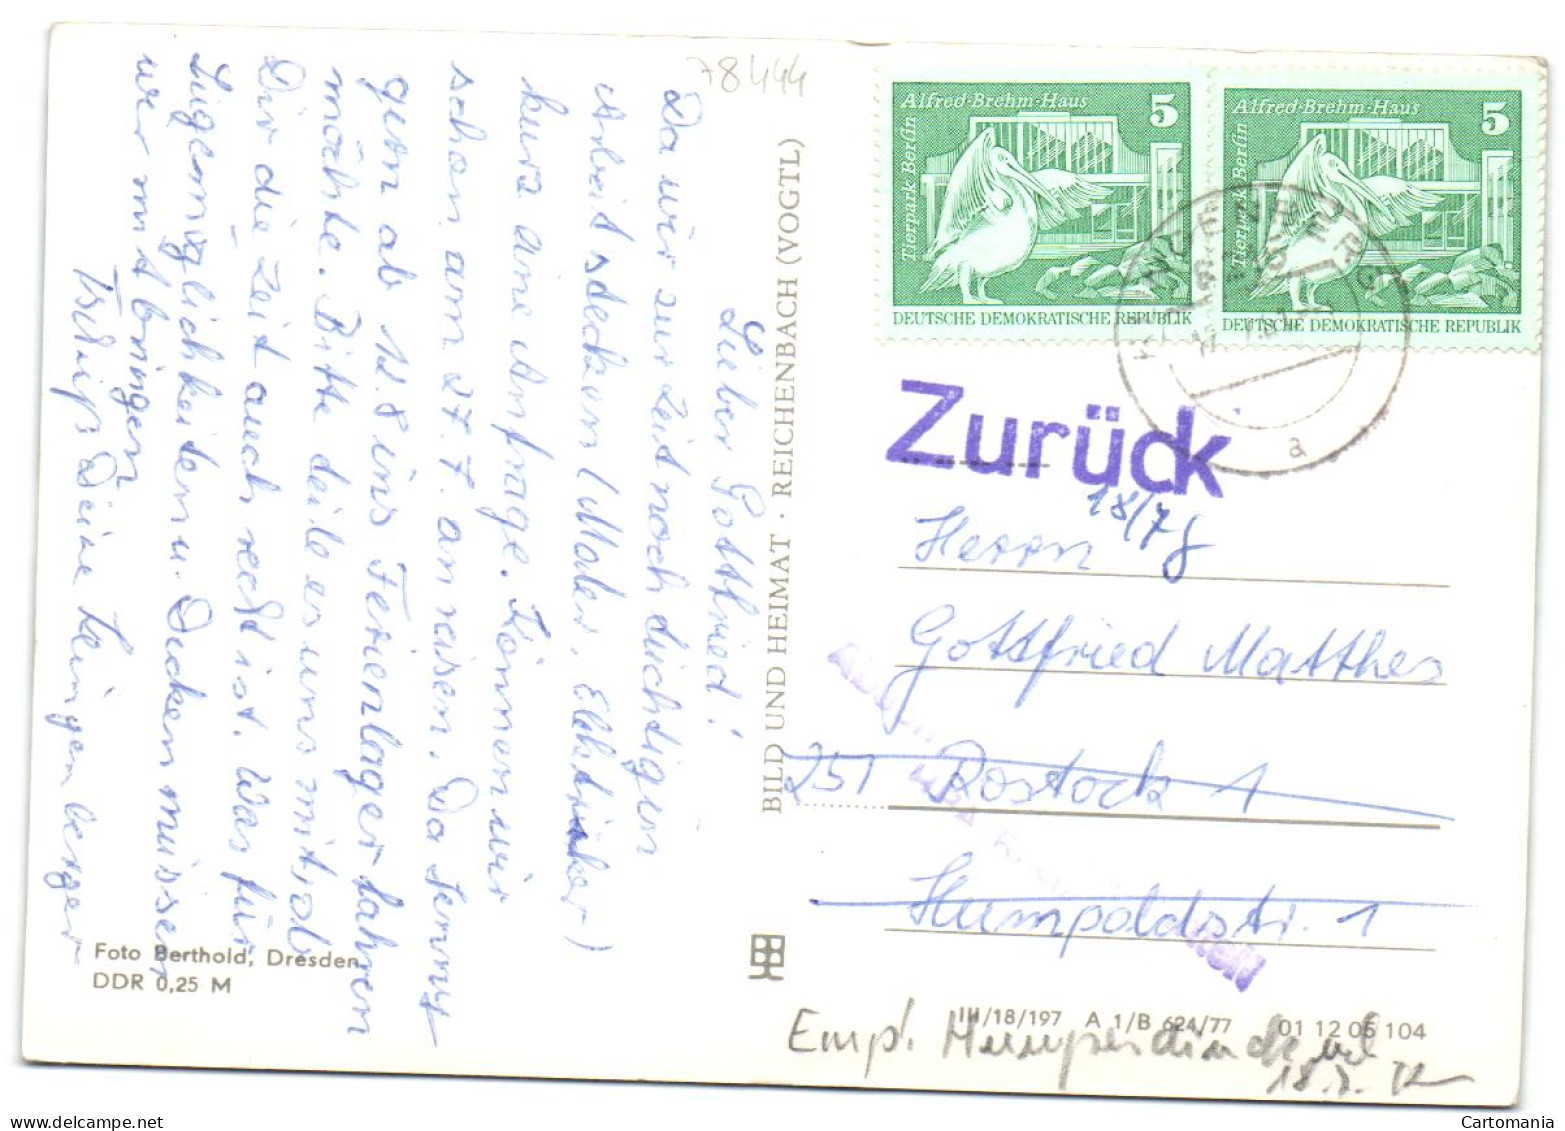 78444
Lieber Gottfried!
Da wir zur Zeit noch tüchtigen
Arbeit stecken (Maler, Elektriker)
kurz eine Anfrage. Können wir
schon am 27.7. anreisen. Da Jenny
gern ab 12.8 ins Ferienlager fahren
möchte. Bitte teile es uns mit ob
Dir die Zeit auch recht ist. Was für
Liegemöglichkeiten u. Decken müssen
wir mitbringen
Deine
Foto Berthold, Dresden
DDR 0,25 M
BILD UND HEIMAT · REICHENBACH (VOGTL)
Alfred-Brehm-Haus 5
Tierpark Berlin
DEUTSCHE DEMOKRATISCHE REPUBLIK
Alfred-Brehm-Haus 5
Tierpark Berlin
DEUTSCHE DEMOKRATISCHE REPUBLIK
a
Zurück
18/7
Herrn
Gottfried Matthes
251 Rostock 1
Humpoldstr. 1
III/18/197 A 1/B 624/77 01 12 05 104
Empf.
18.7.
Cartomania